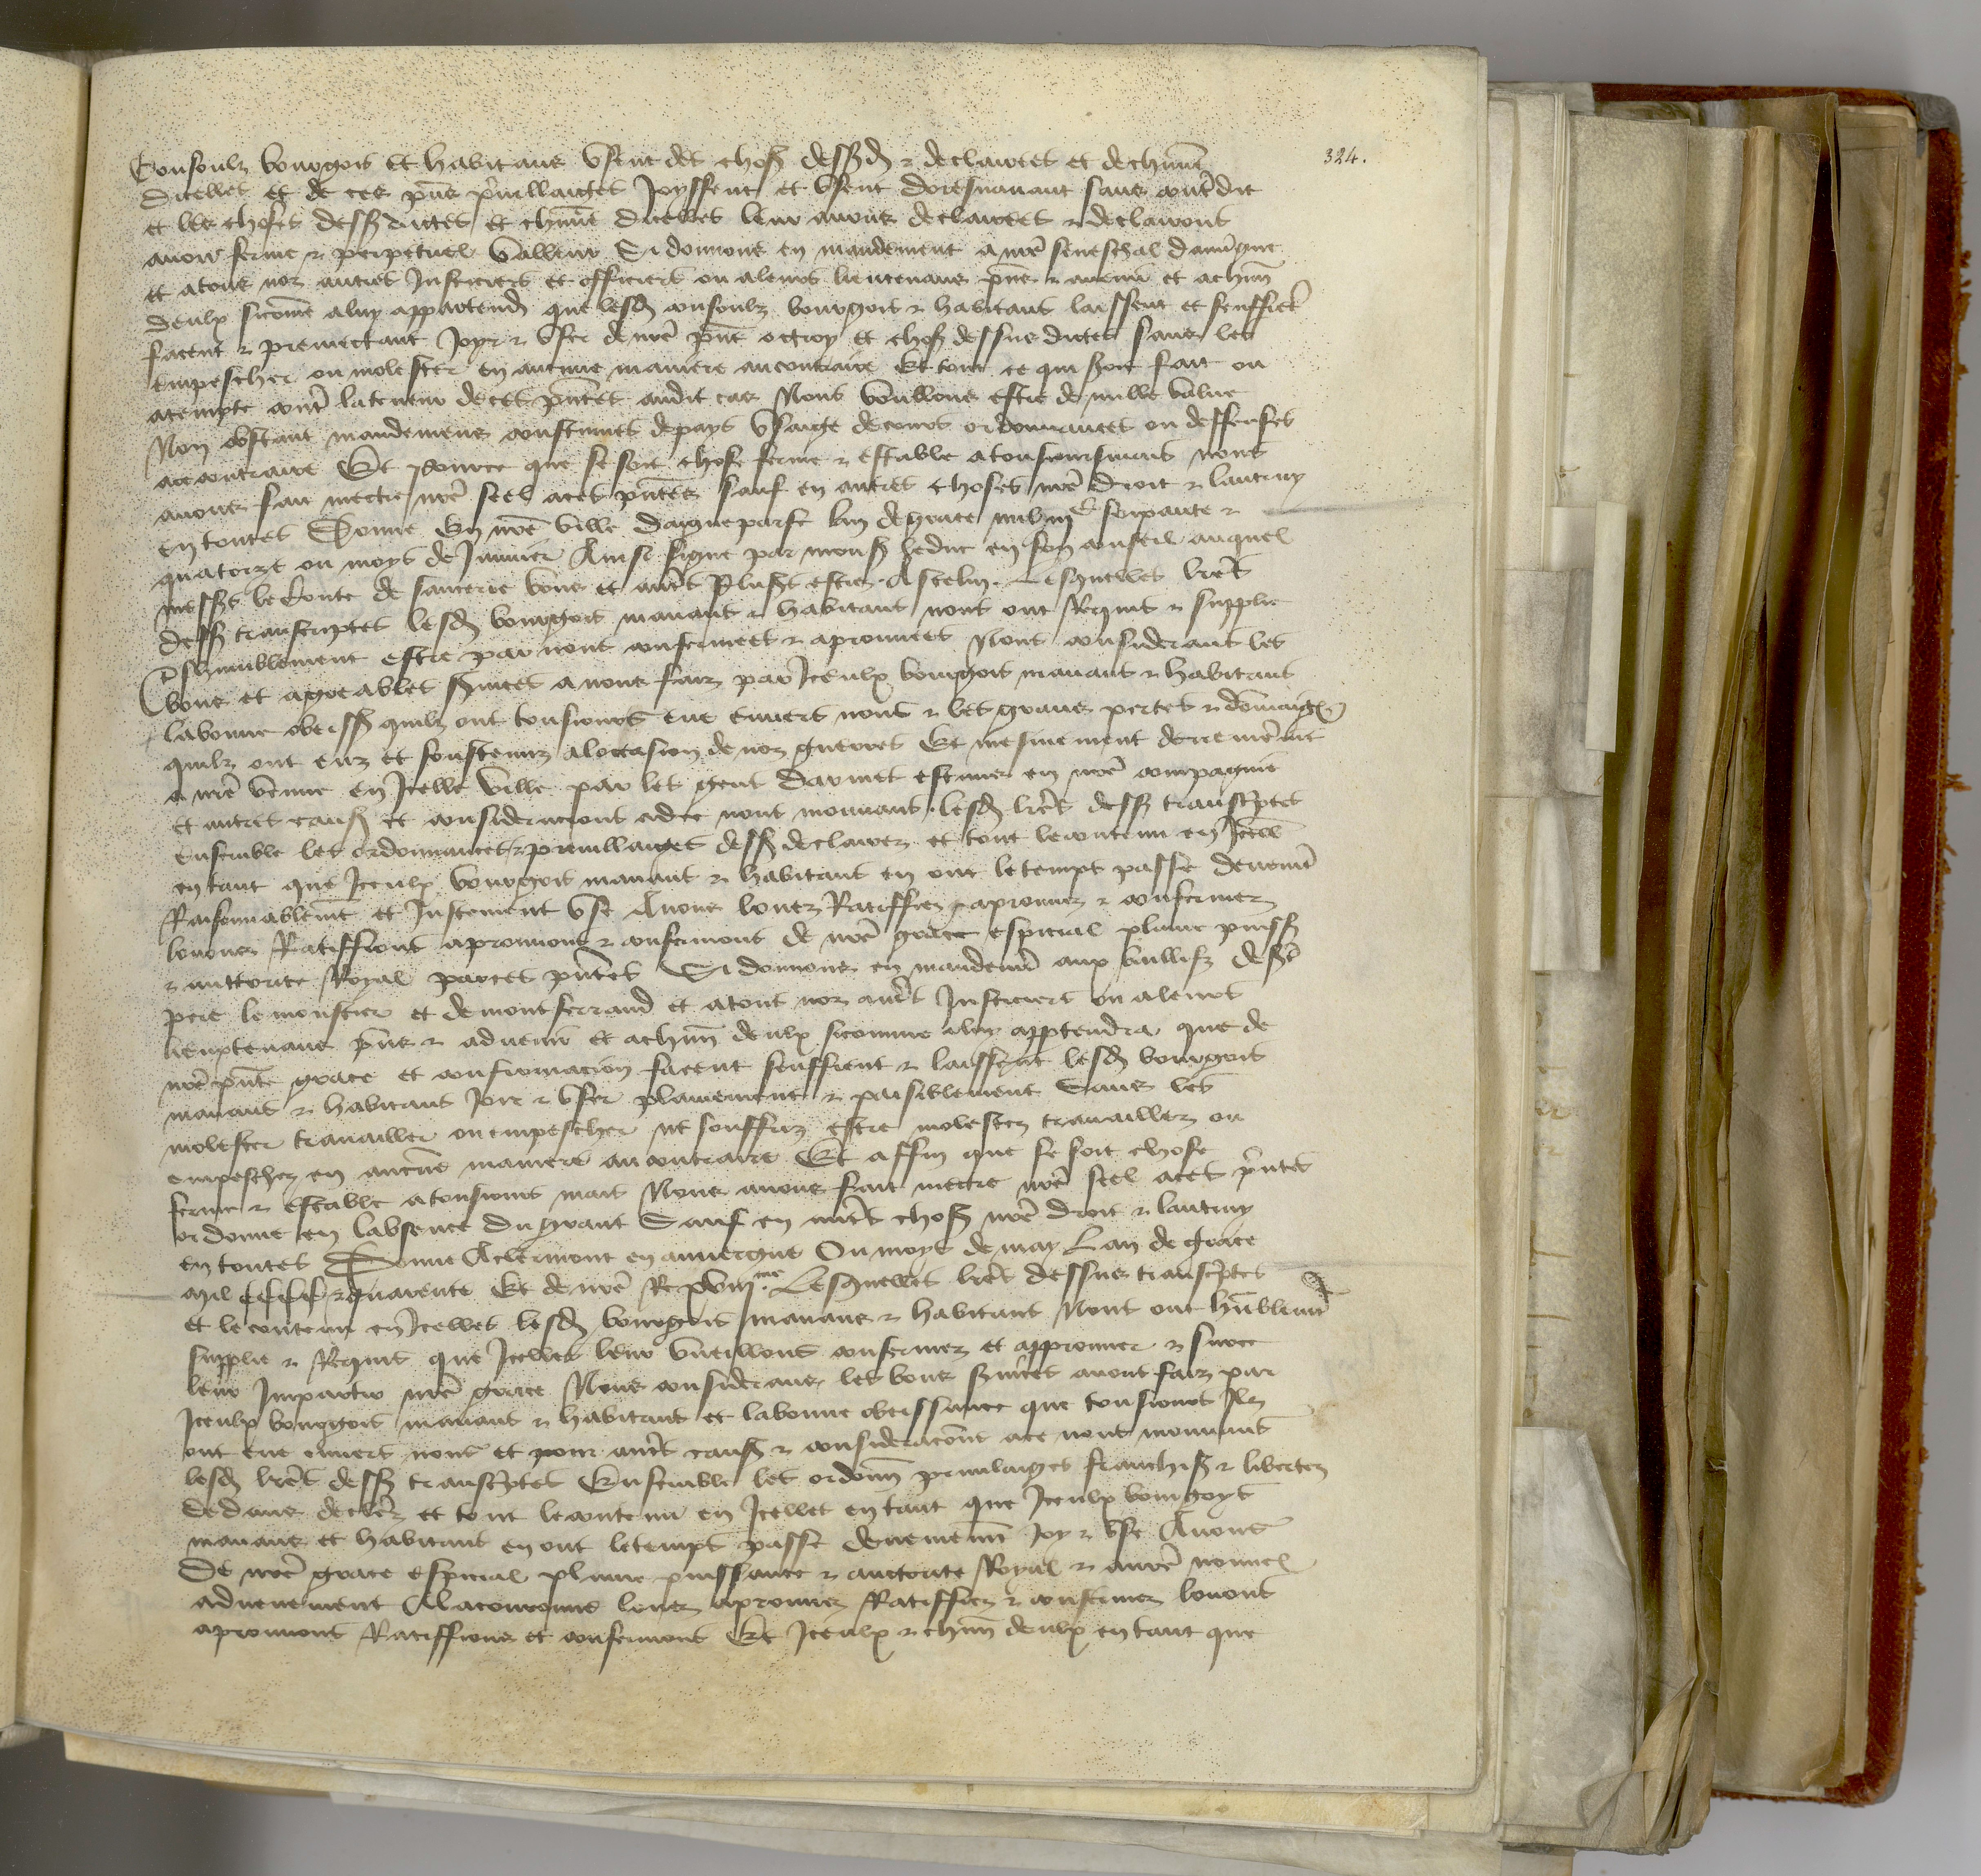 324.
Consoulz bourgois et habitans usent des chos dess d & declairees et de chune
dicelles et de ces pns privillaiges joyssent et usent doresnavant sans contredit
et les choses dess dictes et chune dicelles leur avons declairees & declairons
avoir ferme & perpetuel valleur Si donnons en mandement a nre seneschal dauvgne
et a tous noz autres justiciers et officiers ou a leurs lieutenans pns & avenir et a chun
deulx si come a luy appartend que lesd consoulz bourgois & habitans laissent et seuffret
facent & premectant joyr & user de nre pnt octroy et chos dessus dictes sans les
empescher ou molester en aucune maniere au contraire Et tout ce qui soit fait ou
atempte contre la teneur de ces pntes audit cas Nous voullons estre de nulle value
Non obstant mandemens coustumes de pays usaige de cours ordonnances ou deffenses
a ce contraire Et pource que se soit chose ferme & estable a tousioursmais nous
avons fait mectre nre seel a ces pntes sauf en autres choses nre droit & lautruy
en toutes Donne En nre ville daigueparse lan de grace mil iiic soixante &
quatorze ou moys de Janvier Ainsi signe par mons le duc en son conseil auquel
mess le Conte de sancerre vous et autres plus estiez Ascelin Lesquelles lres
dess transcriptes lesd bourgois manans & habitans nous ont requis & supplie
humblement estre par nous confermees & aprouvees Nous considerans les
bons et agreables suices a nous faiz par iceulx bourgois manans & habitans
la bonne obeiss quilz ont tousiours eue envers nous & les grans pertes & domaiges
quilz ont euz et soustenuz a loccasion de noz guerres Et mesmement derremeremt
a nre venue en icelle ville par les gens darmes estans en nre compagnie
et autres caus et consideracions ad ce nous mouvans lesd lres dess transcriptes
ensemble les ordonnances & previllaiges dess declairez et tout le contenu en icelles
en tant que iceulx bourgois manans & habitans en ont le temps passe deuemt
Raisonnablemt et justement use Avons louez Ratiffiez aprouvez & confermez
louons Ratiffions aprouvons & confermons de nre grace espicial plaine puiss
& auttorite Royal par ces pntes Si donnons en mandemt aux baillifz de st
pere le moustier et de montferrand et a tous noz autres justiciers ou a leurs
lieuptenans pns & advenir et a chun deulx si comme a luy apptendra que de
nre pnte grace et confirmacion facent seuffrent & laissent lesd bourgois
manans & habitans joir & user plainement & paisiblement Sans les
molester travailler ou empescher ne souffrir estre molestez travaillez ou
empeschez en aucune maniere au contraire Et affin que se soit chose
ferme & estable a tousiours mais Nous avons fait mectre nre seel a ces pntes
ordonne en labsence du grant Sauf en autres chos nre droit & lautruy
en toutes Donne A clermont en auvergne Ou moys de may Lan de grace
mil cccc & quarente Et de nre Re xviiime Lesquelles lres dessus transcriptes
et le contenu en icelles lesd bourgois manans & habitans Nous ont humblemt
supplie & Requis que icelles leur vueillons confermer et approuver & sur ce
leur impartir nre grace Nous considerans les bons suices a nous faiz par
iceulx bourgois manans & habitans et la bonne obeissance que tousiours ilz
ont eue envers nous et pour autres caus & consideracions a ce nous mouvans
lesd lres dess transcriptes Ensemble les ordonn previlaiges franchis & libertez
dedans declairez et tout le contenu en icelles en tant que iceulx bourgoys
manans et habitans en ont le temps passe deuement joy & use Avons
De nre grace espicial plaine puissance & auctorite Royal & a nre nouvel
advenement A la couronne louez aprouvez Ratiffiez & confermez louons
aprouvons Ratiffions et confermons Et iceulx & chun deulx en tant que